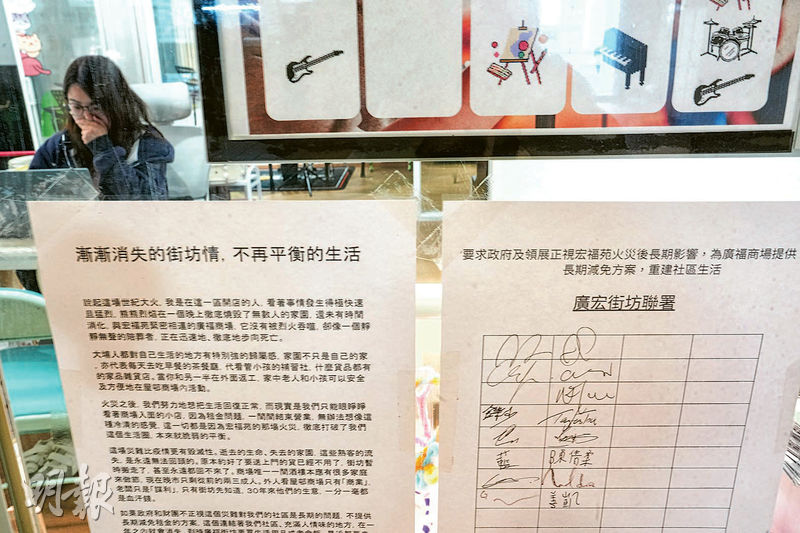 漸漸消失的街坊情，不再平衡的生活
說起這場世紀大火，我是在這一區開店的人，看著事情發生得極快速
且猛烈。熊熊烈焰在一個晚上徹底燒毀了無數人的家園，還未有時間
消化，與宏福苑緊密相連的廣福商場，它沒有被烈火吞噬，卻像一個靜
靜無聲的陪葬者，正在迅速地、徹底地步向死亡。
大埔人都對自己生活的地方有特別強的歸屬感，家園不只是自己的家
，亦代表每天去吃早餐的茶餐廳，代看管小孩的補習社，什麼貨品都有
的家品雜貨店。當你和另一半在外面返工，家中老人和小孩可以安全
及方便地在屋邨商場內活動。
火災之後，我們努力地想把生活回復正常，而現實是我們只能眼睜睜
看著商場入面的小店，因為租金問題，一間間結束營業，無辦法想像這
種冷清的感覺，這一切都是因為宏福苑的那場火災，徹底打破了我們
這個生活圈，本來就脆弱的平衡。
這場災難比疫情更有毀滅性。逝去的生命、失去的家園，這些熟客的流
失，是永遠無法回頭的。原本約好了要送上門的貨已經不用了，街坊暫
時搬走了，甚至永遠都回不來了。商場唯一一間酒樓本應有很多家庭
來做節，現在晚市只剩從前的兩三成人。外人看屋邨商場只有「商業」，
老闆只是「謀利」，只有街坊先知道，30年來他們的生意，一分一毫都
是血汗錢。
如果政府和財團不正視這個災難對我們的社區是長期的問題，不提供
長期減免租金的方案，這個連結著我們社區、充滿人情味的地方，在一
要求政府及領展正視宏福苑火災後長期影響，為廣福商場提供
長期減免方案，重建社區生活
廣宏街坊聯署
藍
明報